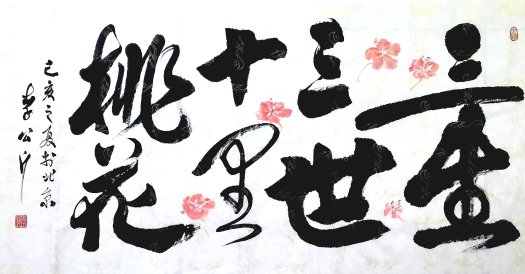 三生
三世
十里
桃花
己亥之夏於北京
李公